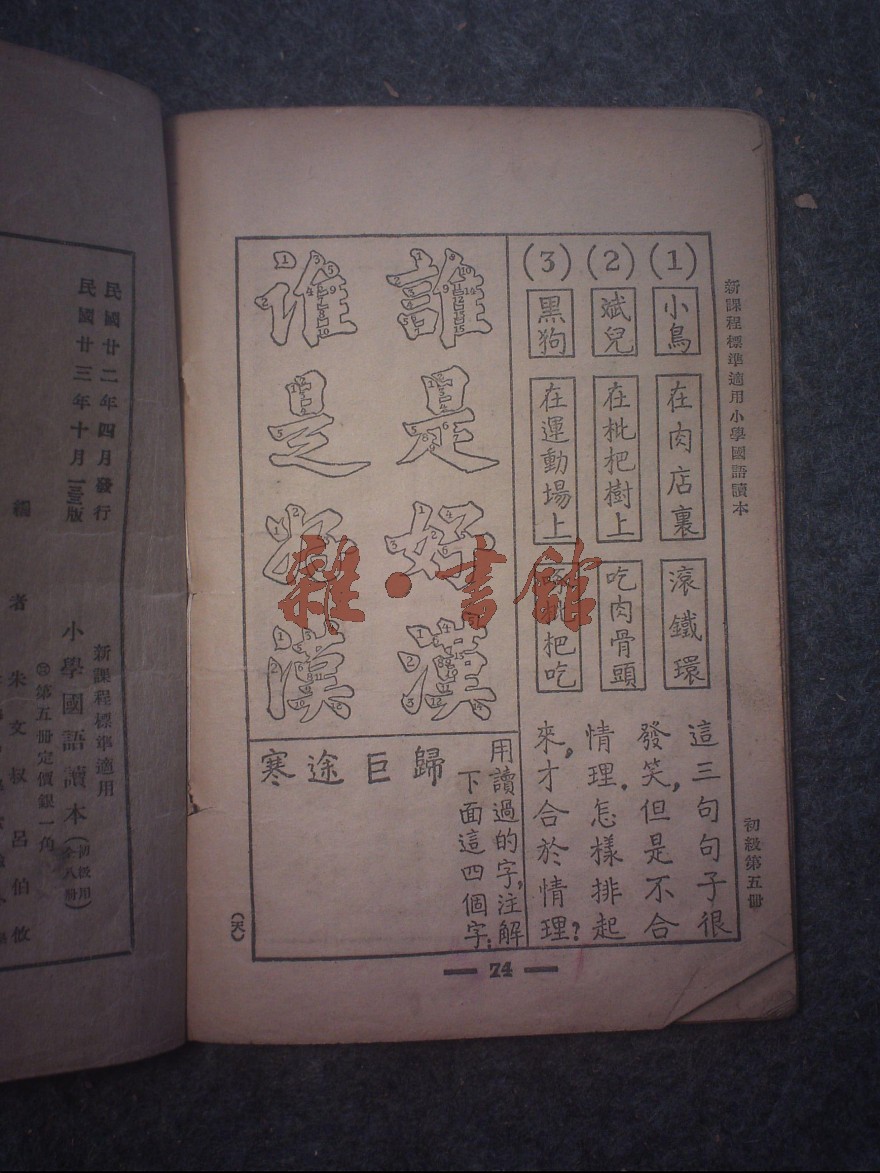 新課程標準適用小學國語讀本
初級第五冊
(1)
小鳥
在肉店裏
滾鐵環
(2)
斌兒
在枇杷樹上
吃肉骨頭
(3)
黑狗
在運動場上
枇杷吃
這三句句子很
發笑，但是不合
情理。怎樣排起
來，才合於情理？
誰是好漢
谁是好漢
用讀過的字，注解
下面這四個字：
歸
巨
途
寒
(天)
74
雜·書館
民國廿二年四月發行
民國廿三年十月一三一版
新課程標準適用
小學國語讀本(初級用全八冊)
第五冊定價銀一角
編者 朱文叔 呂伯攸